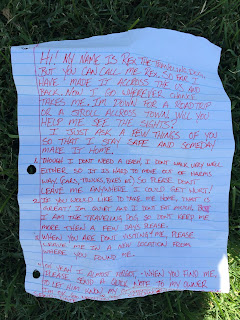 Hi! My name is Rex the Traveling Dog.
But you can call me Rex. So far I
have made it accross the US and
back. Now I go wherever chance
takes me. I'm down for a roadtrip
or a stroll accross town. Will you
help me see the sights?
I just ask a few things of you
so that I stay safe and someday
make it home.
1. Though I dont need a leash I dont walk very well
either so it is hard to move out of harms
way (cars, trucks, bikes etc) so please dont
leave me anywhere I could get hurt.
2. If you would like to take me home, that is
great! I'm quiet and I dont eat much. But
I am the traveling dog so dont keep me
more then a few days please.
3. When you are done visiting me, please
leave me in a new location from
where you found me.
Oh yeah I almost forgot, when you find me,
please send a quick note to my owner
to let him know my